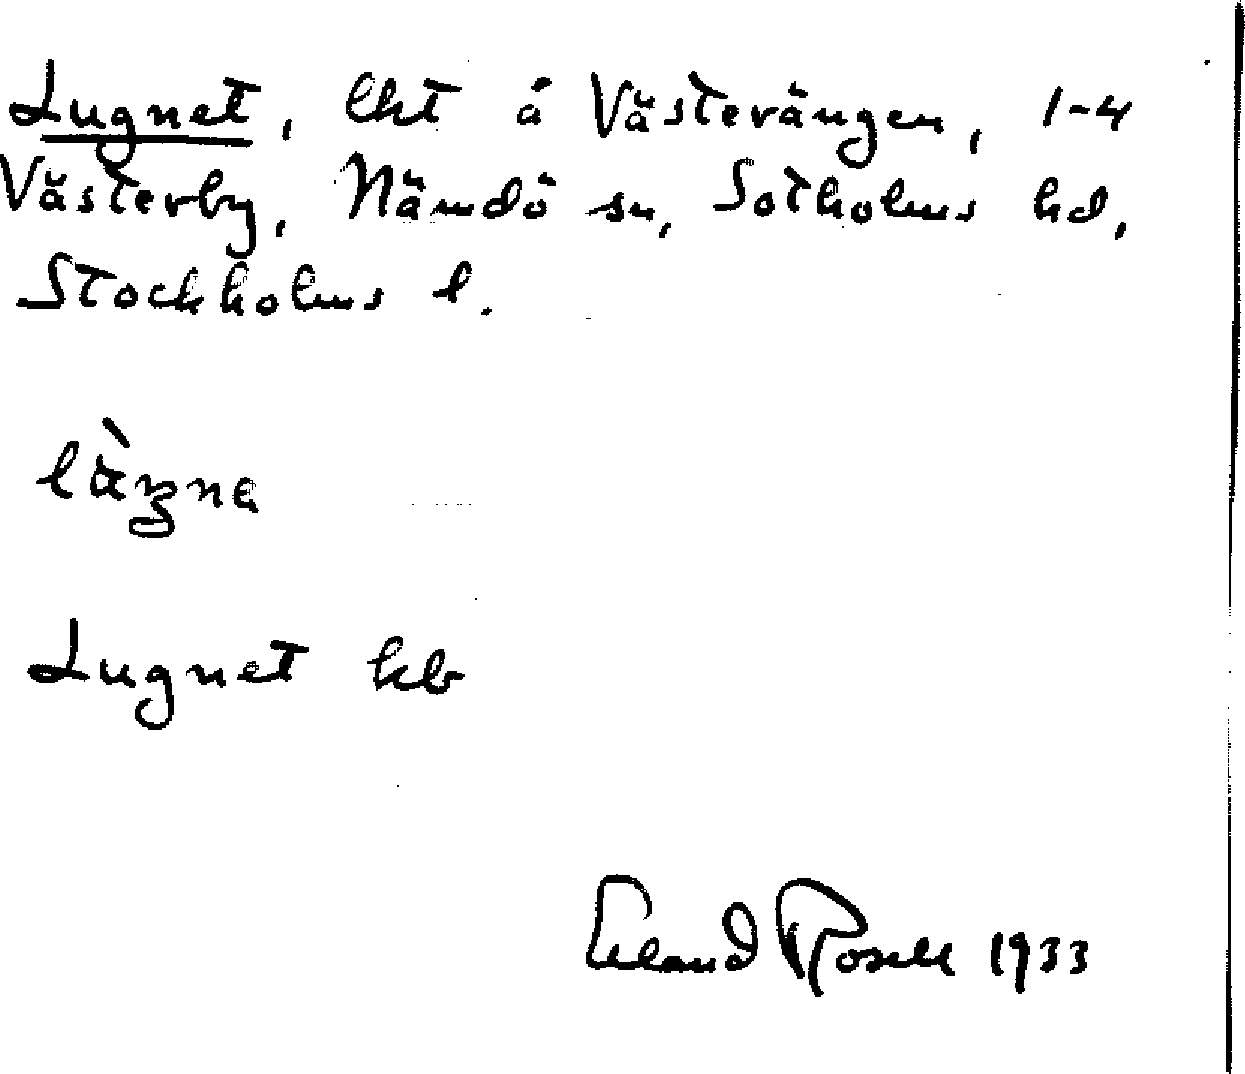 Lugnet, lht å Västerängen, 1-4
Västerby, Nämdö sn, Sotholms hd,
Stockholms l.
Lugnet kb
Erland Rosell 1933